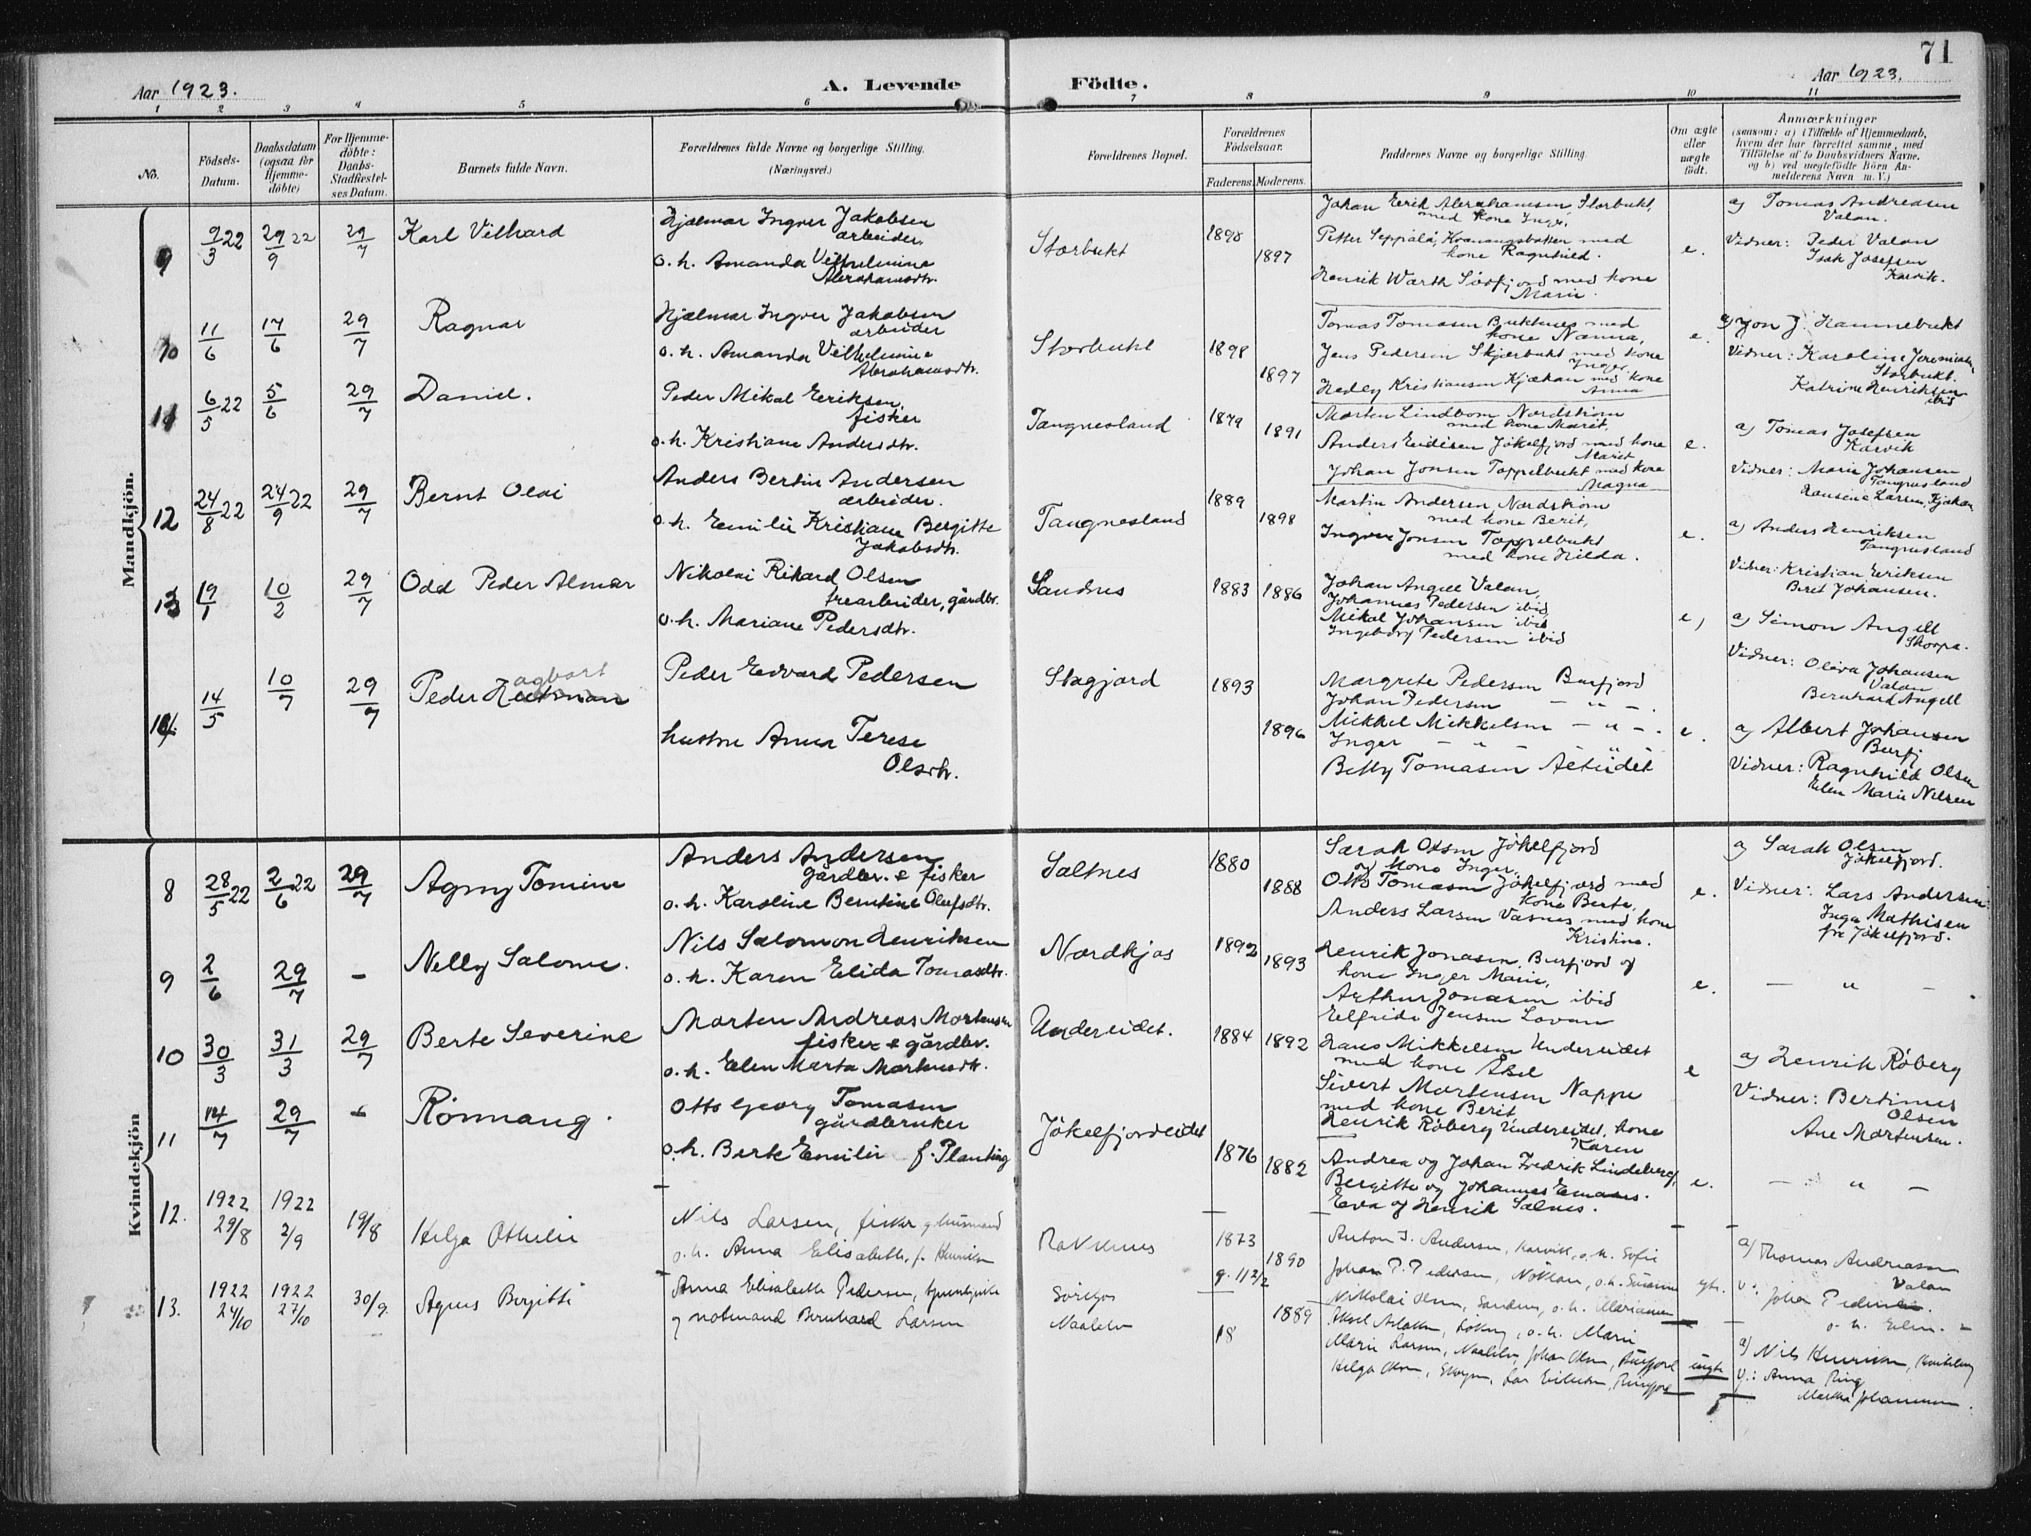 71
Aar 1923.
A. Levende
Födte.
Aar 1923.
1 2 3 4 5 6 7 8 9 10 11
No.
Födsels-
Datum.
Daabsdatum
(ogsaa for
Hjemme-
döbte)
For Hjemme-
döbte:
Daabs-
Stadfæstel-
ses Datum.
Barnets fulde Navn.
Forældrenes fulde Navne og borgerlige Stilling.
(Næringsvei.)
Forældrenes Bopæl.
Forældrenes
Födselsaar.
Faderens. Moderens.
Faddernes Navne og borgerlige Stilling.
Om ægte
eller
uægte
födt.
Anmærkninger
(saasom: a) i Tilfælde af Hjemmedaab,
hvem der har forrettet samme, med
Tilföielse af to Daabsvidners Navne,
og b) ved uægtefödte Börn An-
melderens Navn m. V.)
Mandkjön.
9
9/3 22
29/9 22
29/7
Karl Vilhard
Hjalmar Ingver Jakobsen
arbeider
o.h. Amanda Vilhelmine
Abrahamsdtr.
Storbukt
1898
1897
Johan Eerik Abrahamsen, Storbukt,
med kone Inger,
Petter Seppälä, Kvænangsbotten med
kone Ragnhild.
Henrik Warth Sörfjord med kone
Marie.
e.
a) Tomas Andreasen
Valan.
Vidner: Peder Valan
Isak Josefsen
Karvik.
10
11/6
17/6
29/7
Ragnar
Hjalmar Ingver Jakobsen
arbeider
o.h. Amanda Vilhelmine
Abrahamsdtr.
Storbukt
1898
1897
Tomas Tomasen Buktnes med
kone Nanna,
Jens Pedersen Skjærbukt med kone
Inger,
Hedley Kristiansen Kjækan med kone
Anna
e.
a) Jon J. Hannebukt
Vidner: Karoline Jeremiasn
Storbukt.
Katrine Henriksen
ibid
11
6/5 22
5/6
29/7
Daniel.
Peder Mikal Eeriksen,
fisker
o.h. Kristiane Andersdtr.
Tangnesland
1879
1891
Morten Lindbom Nordstrøm
med kone Marit,
Anders Eidisen Jökelfjord med kone
Maret
Johan Jonsen Toppelbukt med kone
Magna
e.
a) Tomas Josefsen
Karvik
Vidner: Marie Johansen
Tangnesland
Hansine Larsen, Kjækan
12
24/8 22
24/9 22
29/7
Bernt Olai
Anders Bertin Andersen
arbeider.
o.h. Emilie Kristiane Bergitte
Jakobsdtr.
Tangnesland
1889
1898
Martin Andersen, Nordstrøm
med kone Berit,
Ingver Jonsen Toppelbukt
med kone Hilda.
e.
a) Anders Henriksen
Tangnesland
Vidner: Kristian Eeriksen
Beret Johansen.
13
19/1
10/2
29/7
Odd Peder Almar
Nikolai Rikard Olsen
trearbeider, gårdbr.
o.h. Mariane Pedersdtr.
Sandnes
1883
1886
Johan Angell Valan,
Johannes Pedersen ibid,
Mikal Johansen ibid
Ingeborg Pedersen ibid
e,
a) Simon Angell
Skorpa.
Vidner: Oliva Johansen
Valan
Bernhard Angell
14
14/5
10/7
29/7
Peder
Peder Edvard Pedersen
hustru Anna Terese
Olsdtr.
Stagjord
1893
1896
Margrete Pedersen Burfjord
Johan Pedersen — " —.
Mikkel Mikkelsen — " —.
Inger — " —
Betty Tomasen Alteidet
e.
a) Albert Johansen
Burfj
Vidner: Ragnhild Olsen
Elen Marie Nilsen
Kvindekjön
8
28/5 22
2/6 22
29/7
Agny Tomine
Anders Andersen
gårdbr. & fisker
o.h. Karoline Berntine Olufsdtr.
Saltnes
1880
1888
Sarah Olsen Jökelfjord
og kone Inger.
Otto Tomasen Jökelfjord med
kone Berte,
Anders Larsen Vasnes med kone
Kristine.
e.
a) Sarah Olsen
Jökelfjord.
Vidner: Lars Andersen
Inga Mathisen
fra Jökelfjord.
9
2/6
29/7
—
Nelly Salome.
Nils Salomon Henriksen
o.h. Karen Elida Tomasdtr.
Nordkjos
1892
1893
Henrik Jonasen, Burfjord og
kone Inger Marie,
Arthur Jonasen ibid
Elfrida Jensen Lovan
e.
— " —
10
30/3
31/3
29/7
Berte Severine
Morten Andreas Mortensen
fisker & gårdbr.
o.h. Elen Marta Mortensdtr.
Undereidet.
1884
1892
Hans Mikkelsen Undereidet
med kone Abel
Sivert Mortensen Nappe
med kone Berit
Henrik Röberg Undereidet, kone
Karen
e
a) Henrik Röberg
Vidner: Bertines
Olsen
Ane Mortensen.
11
14/7
29/7
—
Rønnaug.
Otto Georg Tomasen
gårdbruker
o.h. Berte Emilie f. Planting
Jökelfjordeidet
1876
1882
Andrea og Johan Fredrik Lindeberg,
Bergitte og Johannes
Eva og Henrik Salnes.
e.
— " —
12.
1922
29/8
1922
2/9
19/8
Helga Othelie
Nils Larsen, fisker g husmand
o.h. Anna Elisabeth, f. Henriksn
1873
1890
g. 11 2/2
Anton J. Andersen, Karvik, o.h. Sofie
Johan P. Pedersen,
Nikolai Olsen, Sandnes, o.h. Marianne
Aksel
o.h. Marie
egt.
a) Thomas Andreassen
Valan
v: Johan Pedersen
o.h. Elen.
13.
1922
24/10
1922
27/10
30/9.
Agnes Birgitte
Anna Elisabeth Pedersen, tjenestpike
og notmand Bernhard Larsen
1889
18
Marie Larsen,
Johan Olsen, Burfjord
Helga Olsen,
uægte
a) Nils Henriksen,
v.: Anna Ring
Martha Johannesen.